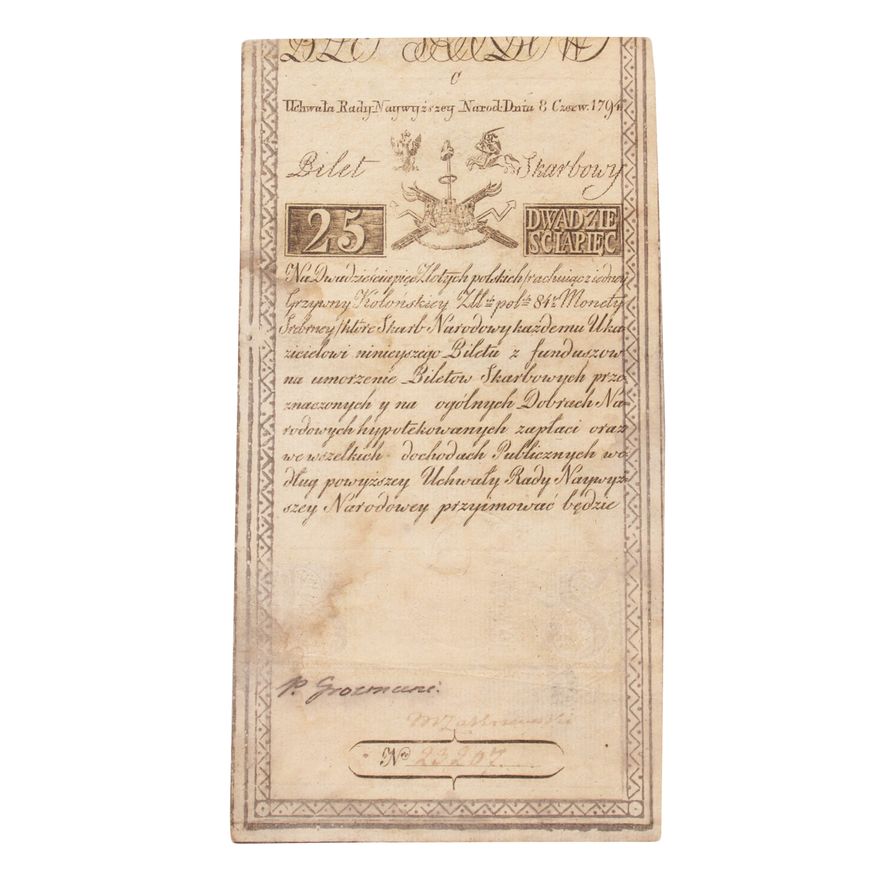 C
Uchwała Rady Naywyższey Narod: Dnia 8 Czerw: 1794
Bilet Skarbowy
25 DWADZIE
ŚCIAPIĘĆ
Na Dwadzieściapięć Złotych polskich (rachując z iedney
Grzywny Kolońskiey Złł:ch pol:ch 84½ Monety
Srebrney) które Skarb Narodowy każdemu Uka
zicielowi ninieyszego Biletu z funduszow
na umorzenie Biletów Skarbowych prze
znaczonych y na ogólnych Dobrach Na
rodowych hypotekowanych zapłaci oraz
we wszelkich dochodach Publicznych we
dług powyższey Uchwały Rady Naywyż
szey Narodowey przyimować będzie
P. Grozmani.
No 23207